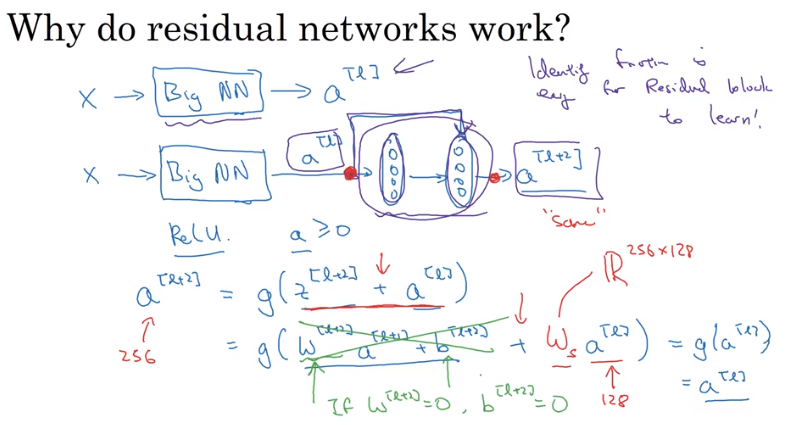 Why do residual networks work?
X → Big NN → a^[l]
Identity function is
easy for Residual block
to learn!
X → Big NN → a^[l] → a^[l+2]
"same"
ReLU. a ≥ 0
ℝ^256×128
a^[l+2] = g(z^[l+2] + a^[l])
= g(W^[l+2] a^[l+1] + b^[l+2] + W_s a^[l]) = g(a^[l])
256
= a^[l]
If W^[l+2]=0, b^[l+2]=0
128